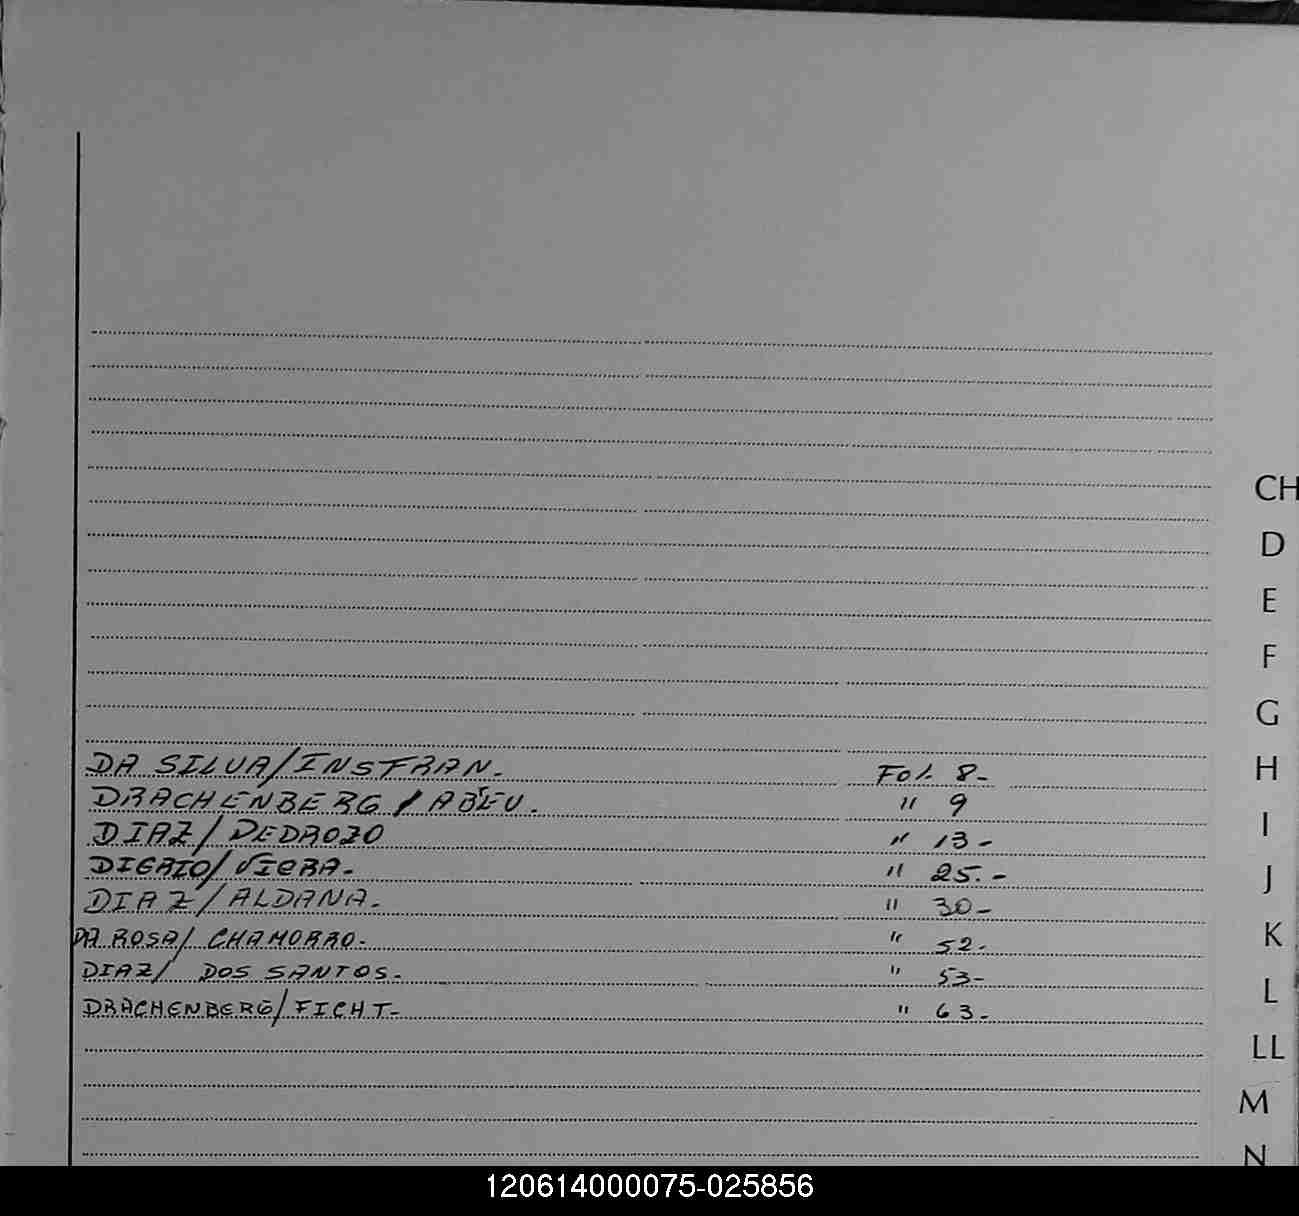 CH
D
E
F
G
H
I
J
K
L
LL
M
N
DA SILVA/INSFRAN. Fol. 8-
DRACHENBERG/ABEU. " 9
DIAZ/PEDROZO " 13-
/VIERA. " 25.-
DIAZ/ALDANA. " 30-
DA ROSA/ CHAMORRO- " 52.
DIAZ/ DOS SANTOS. " 53-
DRACHENBERG/FICHT- " 63.
120614000075-025856